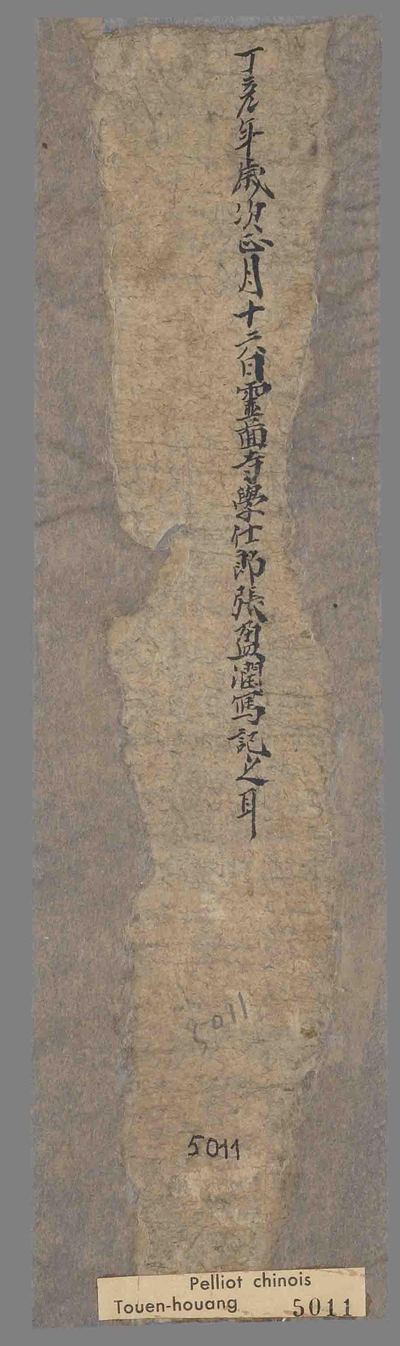 丁亥年歲次正月十六日靈啚寺學仕郎張盈潤寫記之耳
5011
5011
Pelliot chinois
Touen-houang 5011